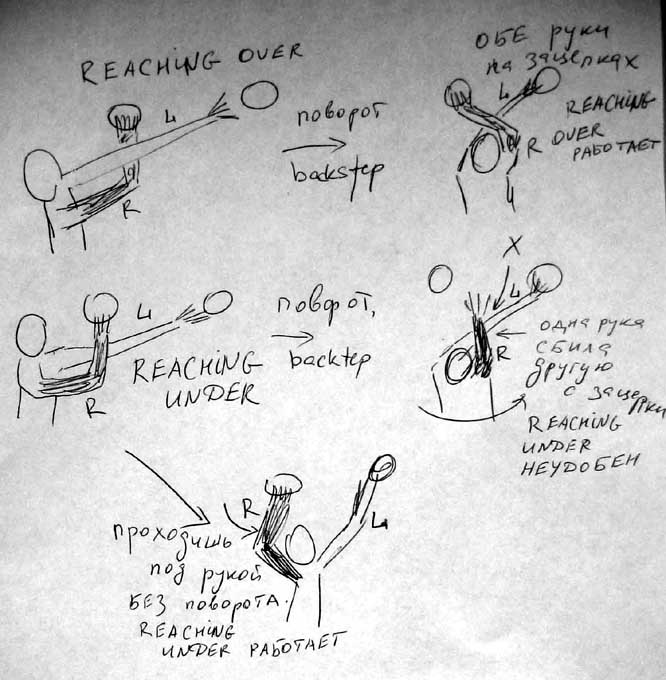 REACHING OVER
L
R
поворот
backstep
ОБЕ руки
на зацепках
L
REACHING
OVER
РАБОТАЕТ
R
L
L
R
REACHING
UNDER
поворот,
backtep
X
L
R
одна рука
сбила
другую
с зацепки
REACHING
UNDER
НЕУДОБЕН
R
L
проходишь
под рукой
БЕЗ поворота.
REACHING
UNDER РАБОТАЕТ